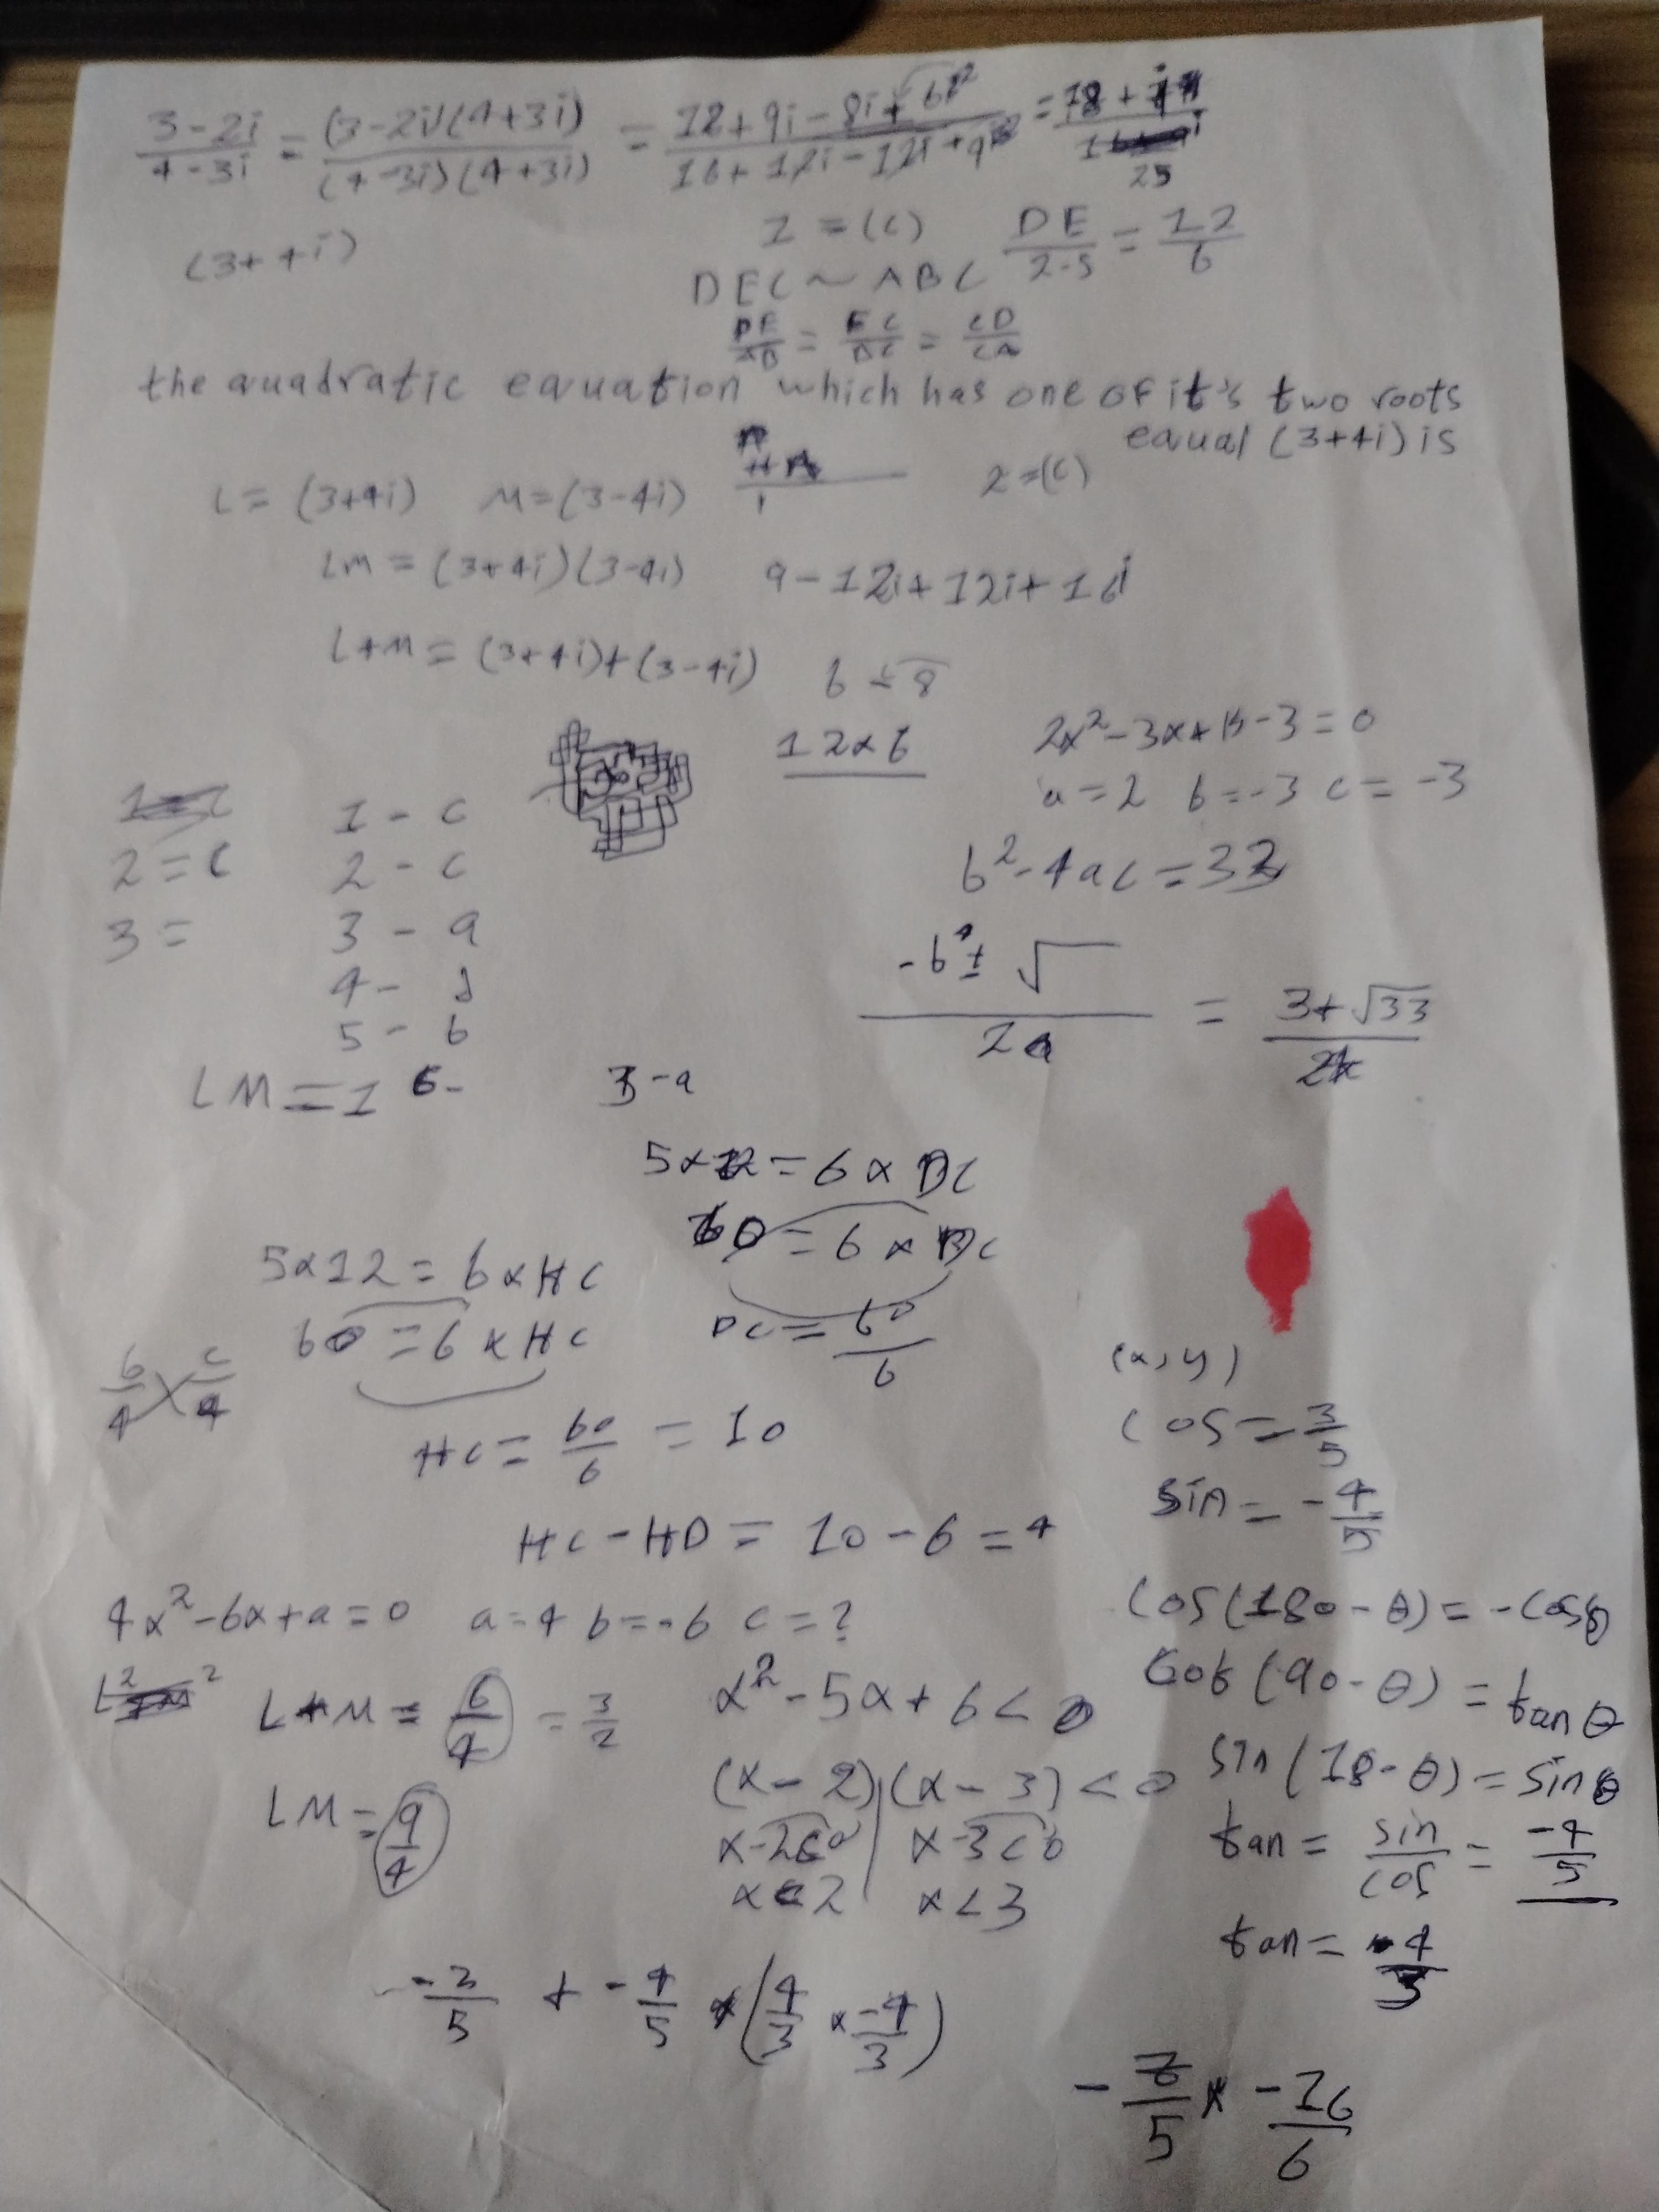 3-2i/4-3i = (3-2i)(4+3i)/(4-3i)(4+3i) = 12+9i-8i+6i²/16+12i-12i+9 = 18+i/25
(3+4i)
1 = (c) DE/2.5 = 12/6
DEC ~ ABC
DE/AB = EC/BC = CD/CA
the quadratic equation which has one of it's two roots
equal (3+4i) is
L = (3+4i) M = (3-4i) 2 = (c)
LM = (3+4i)(3-4i) 9-12i+12i+16
L+M = (3+4i)+(3-4i) 6 8
12×6 2x²-3x+ -3=0
a=2 b=-3 c=-3
1 - c
2 = c 2 - c b²-4ac = 33
3 = 3 - a
4 - d -b ± √ /2a = 3+√33/
5 - b
LM = 1 6- 3-a
5×12 = 6×DC
60 = 6×DC
5×12 = 6×HC
60 = 6×HC DC = 60/6
6/4 × c/4 (x, y)
HC = 60/6 = 10 cos = 3/5
sin = -4/5
HC-HD = 10-6 = 4
4x²-6x+a=0 a=4 b=-6 c=? cos(180-θ) = -cosθ
L+M = 6/4 = 3/2 x²-5x+6<0 cot(90-θ) = tanθ
LM = 9/4 (x-2)|(x-3)<0 sin(18-θ) = sinθ
x-2<0 | x-3<0 tan = sin/cos = -4/5
x<2 | x<3
tan = -4/3
-3/5 + -4/5 × (4/3 × -4/3)
-7/5 × -16/6